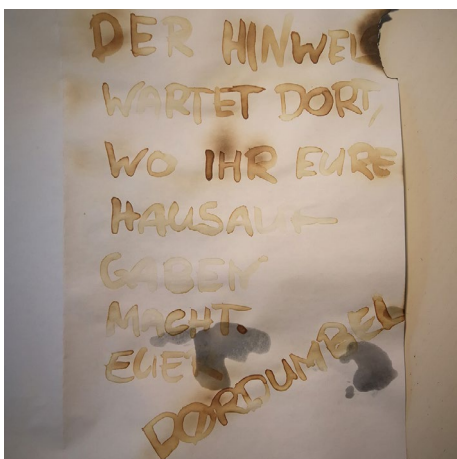 DER HINWEI
WARTET DORT,
WO IHR EURE
HAUSAUF-
GABEN
MACHT.
EUER
DORDUMBEL